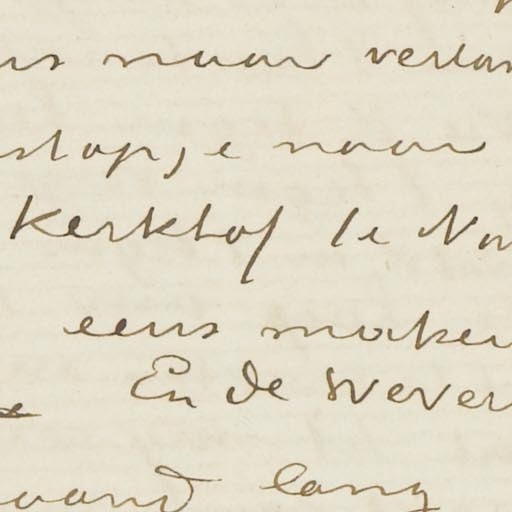 us naar verlan
stapje naar
Kerkhof te Nu
eens maken
En de Wever
vond lang